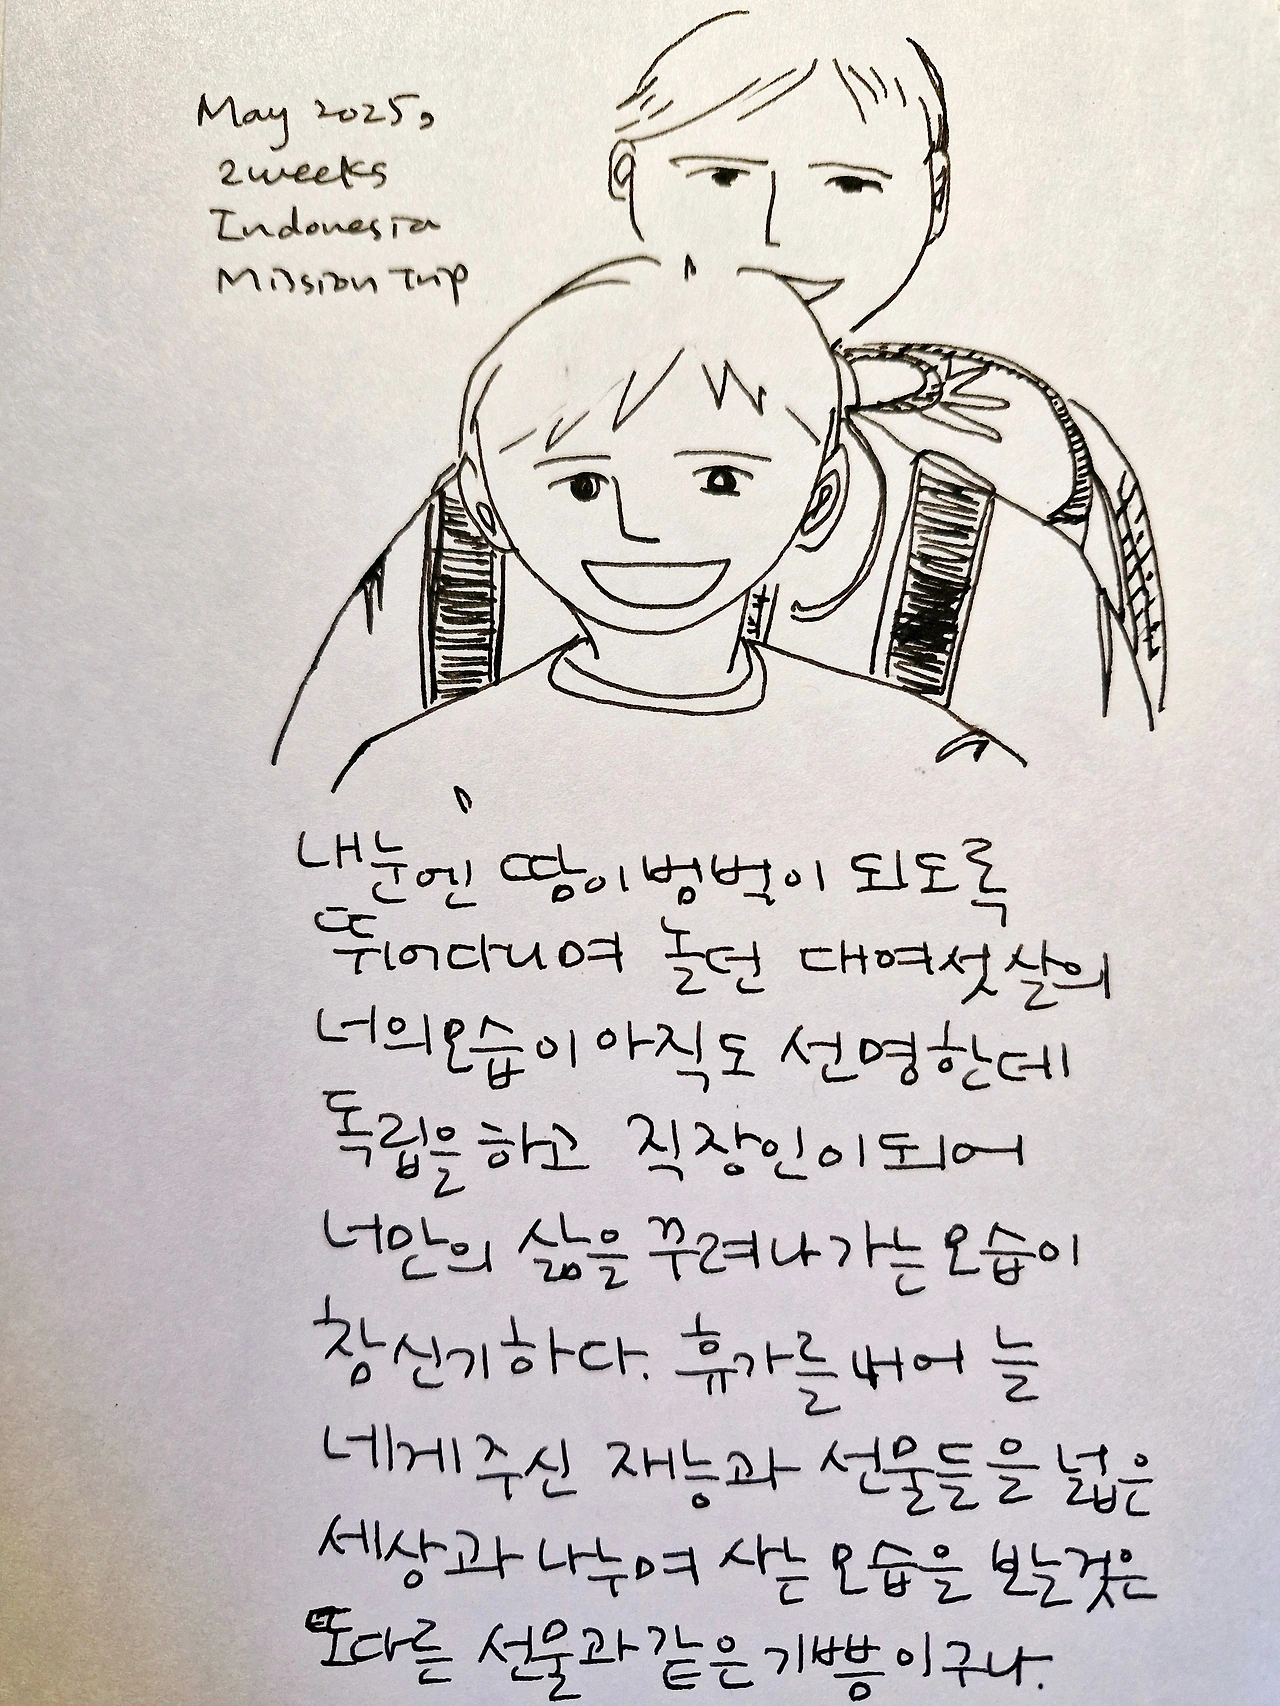 May 2025,
2weeks
Indonesia
Mission Trip
내눈엔 땅이범벅이 되도록
뛰어다니며 놀던 대여섯살의
너의모습이 아직도 선명한데
독립을하고 직장인이되어
너만의 삶을 꾸려나가는모습이
참신기하다. 휴가를내어 늘
네게주신 재능과 선물들을 넓은
세상과 나누며 사는모습을 보는것은
또다른 선물과같은기쁨이구나.